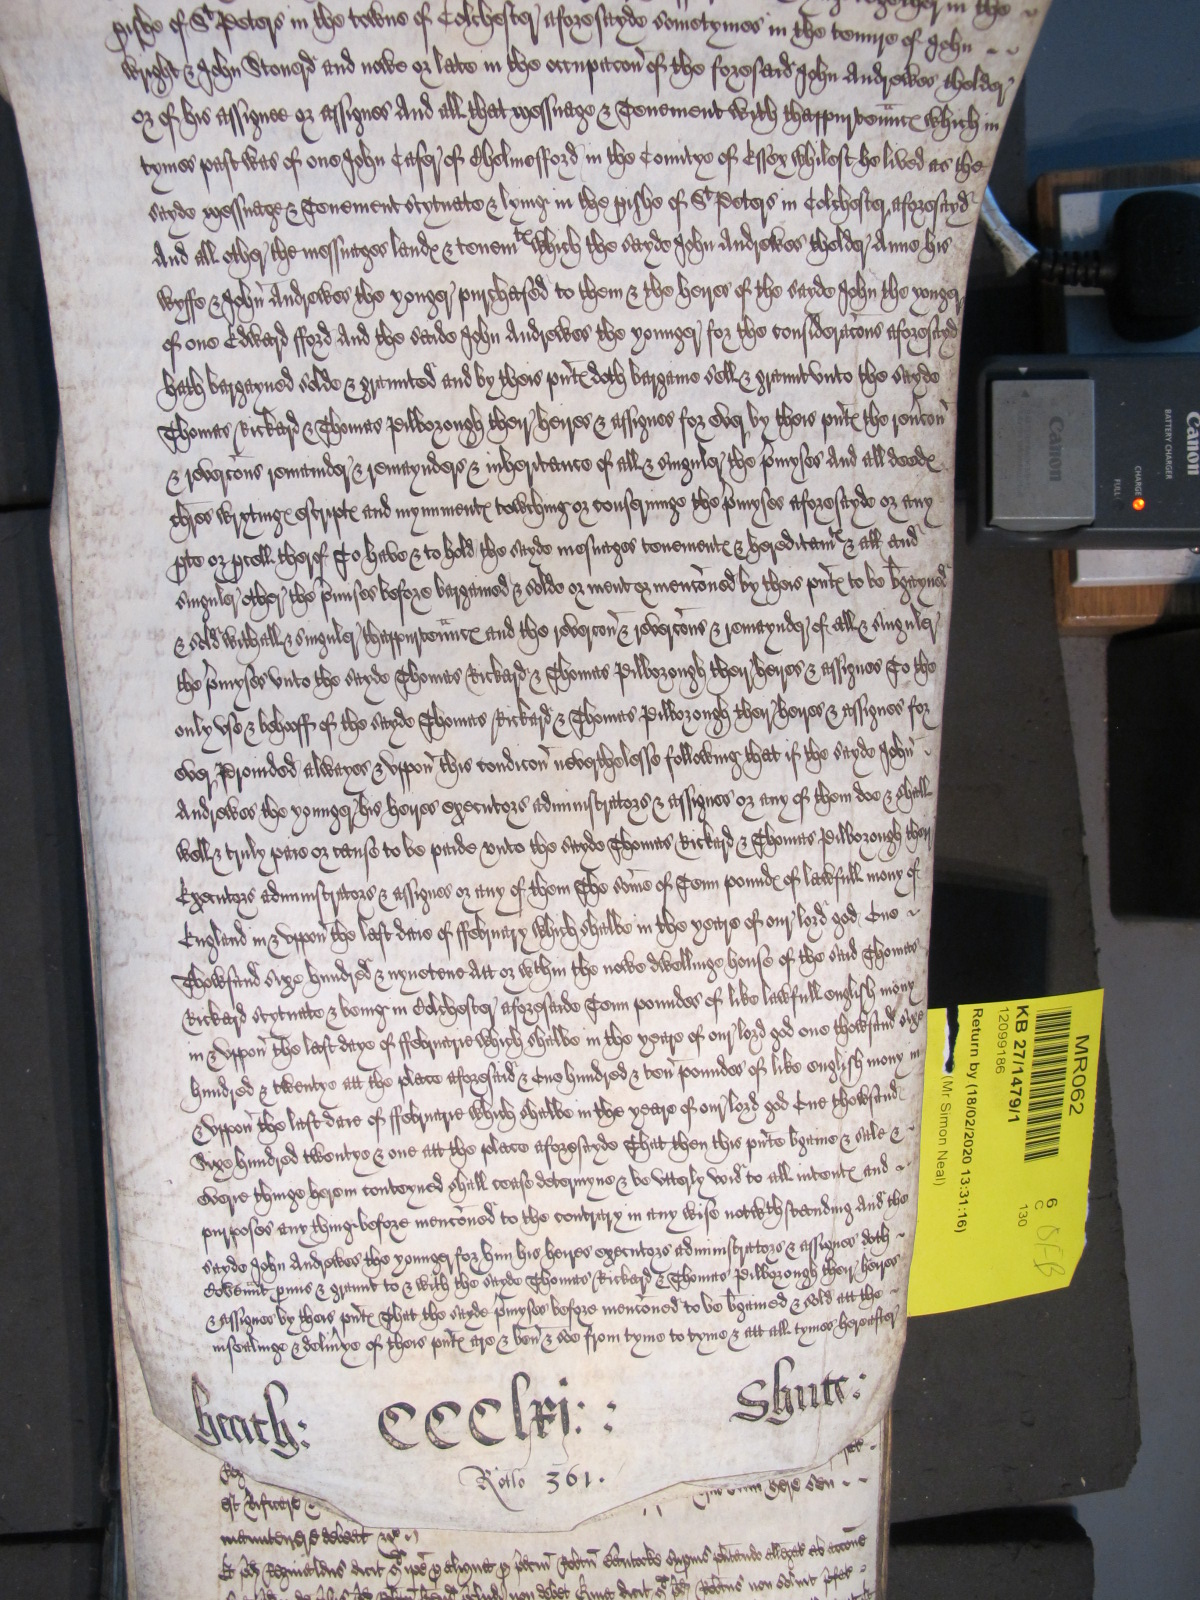 in the
pishe of St Peters in the towne of Colchester aforesayde sometymes in the tenure of John
Wright & John Stonerd and nowe or late in the occupacon of the foresaid John Andrewes thelder
or of his assignee or assignes And all that messuage & Tenement with thappurtennce which in
tymes past was of one John Caser of Chelmesford in the Countye of Essex whilest he lived as the
sayde messuage & Tenement scytuate & lying in the pishe of St Peters in Colchester aforesayd
And all other the messuages land & tenemts which the sayde John Andrewes thelder Anne his
wyffe & John Andrewes the yonger purchased to them & the heires of the sayde John the yonger
of one Edward fford And the saide John Andrewes the younger for the consideracons aforesayd
hath bargayned solde & graunted and by theis pnte doth bargaine sell & graunt unto the sayde
Thomas Rickard & Thomas Pilborough their heires & assignes for ever by theis pnte the rercon
& revercons remainder & remaynders & inheritance of all & singuler the pmyses And all deede
chres wrytinge escripte and mynimente towching or conserninge the pmyses aforesayde or any
pte or pcell therof To have & to hold the sayde mesuages tenemente & hereditamte & all and
singuler other the pmises before bargained & solde or ment or menconed by theis pnte to be bgayned
& sold with all & singuler thappurtennce and the revercon & revercons & remaynder of all & singuler
the pmyses unto the sayde Thomas Rickard & Thomas Pilborough their heires & assignes To the
only use & behooff of the sayde Thomas Rickard & Thomas Pilborough their heires & assignes for
ever Provided alwayes & uppon this condicon neverthelesse following that if the sayde John
Andrewes the younger his heires executors administrators & assignes or any of them doe & shall
well & truly paie or cause to be paide unto the sayde Thomas Rickard & Thomas Pilborough their
Executors administrators & assignes or any of them The some of Tenn pounde of lawfull mony of
England in & uppon the last daie of ffebruary which shalbe in the yeare of our lord god One
Thowsand sixe hundred & nynetene Att or within the nowe dwellinge house of the said Thomas
Rickard scytuate & being in Colchester aforesaide Tenn poundes of like lawfull english mony
in & uppon the last daye of ffebruarie which shalbe in the yeare of our lord god one thowsand sixe
hundred & twentye att the place aforesaid & One hundred & ten poundes of like english mony in
& uppon the last daie of ffebruarie which shalbe in the yeare of our lord god One thowsand
sixe hundred twentye & one att the place aforesayde That then this pnte bgaine & sale &
everie thinge herein conteyned shall cease determyne & be utterly void to all intente and
purposes any thing before menconed to the contrary in any wise notwithstanding And the
sayde John Andrewes the younger for him his heires executors administrators & assignes doth
covennt pmis & graunt to & with the sayde Thomas Rickard & Thomas Pilborough their heires
& assignes by theis pnte That the sayde pmyses before menconed to be bgained & sold att the
insealinge & delivye of theis pnte are & ben & soe from tyme to tyme & att all tymes hereafter
heath: CCClxi: Shute:
Rotlo 361.
Canon
BATTERY CHARGER
CHARGE
FULL
Canon
MR062
KB 27/1479/1
12099186
Return by (18/02/2020 13:31:16)
(Mr Simon Neal)
6
C
130